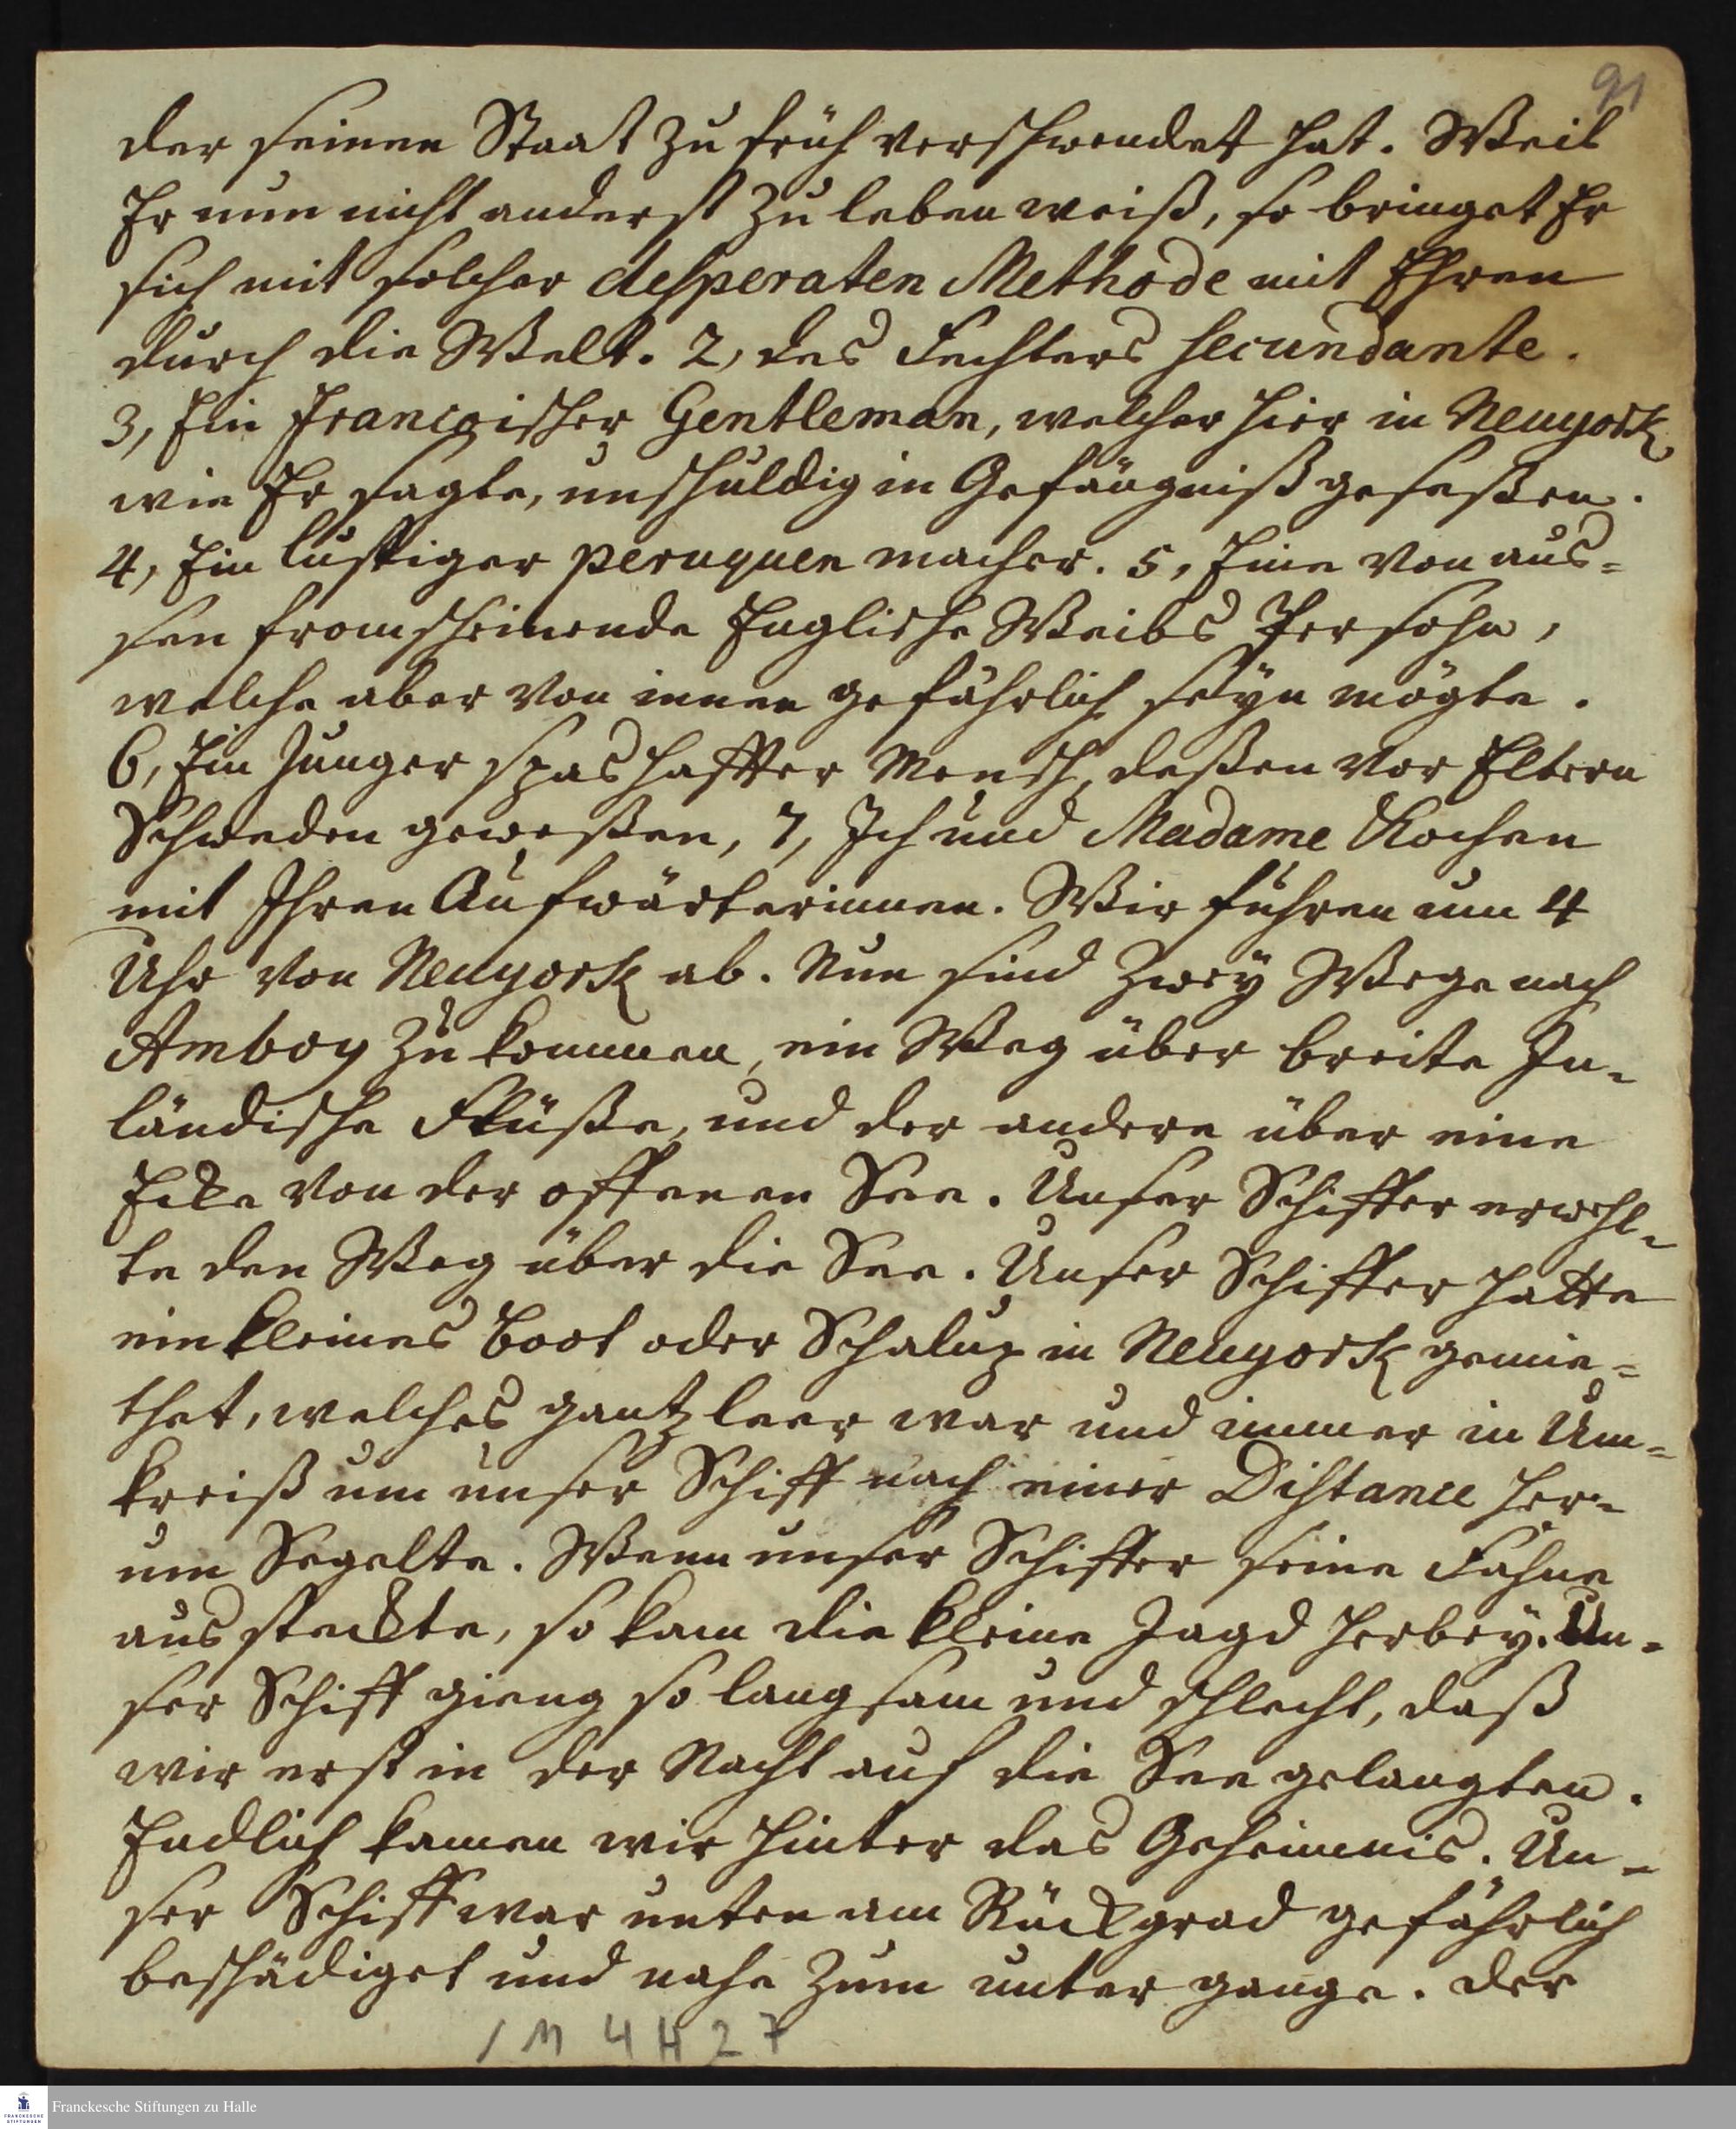 91
der seinen Staat zu früh verschwendet hat. Weil
Er nun nicht anderst zu leben weiß, so bringet Er
sich mit solcher desperaten Methode mit Ehren
durch die Welt. 2, des Fechters secundante.
3, Ein Francoischer Gentleman, welcher hier in Neuyork
wie Er sagte, unschuldig in Gefängniß geseßen.
4, Ein lustiger peruquen macher. 5, Eine von aus=
sen fromscheinende Englische Weibs Persohn,
welche aber von innen gefährlich seyn mögte.
6, Ein Junger spashaffter Mensch, deßen vor Eltern
Schweden geweßen, 7, Ich und Madame Kochen
mit Ihren Aufwärterinnen. Wir fuhren um 4
Uhr von Neuyork ab. Nun sind zwey Wege nach
Amboy zu kommen, ein Weg über breite In=
ländische Flüße, und der andere über eine
Ecke von der offenen See. Unser Schiffer erwehl=
te den Weg über die See. Unser Schiffer hatte
ein kleines Boot oder Schalup in Neuyork gemie=
thet, welches gantz leer war und immer in Um=
kreiß um unser Schiff nach einer Distance her=
um Segelte. Wenn unser Schiffer seine Fahne
aus steckte, so kam die kleine Jagd herbey. Un=
ser Schiff gieng so langsam und schlecht, daß
wir erst in der Nacht auf die See gelangten.
Endlich kamen wir hinter das Geheimnis. Un=
ser Schiff war unten am Rückgrad gefährlich
beschädiget und nahe zum unter gange. der
1 M 4 H 27
FRANCKESCHE STIFTUNGEN
Franckesche Stiftungen zu Halle